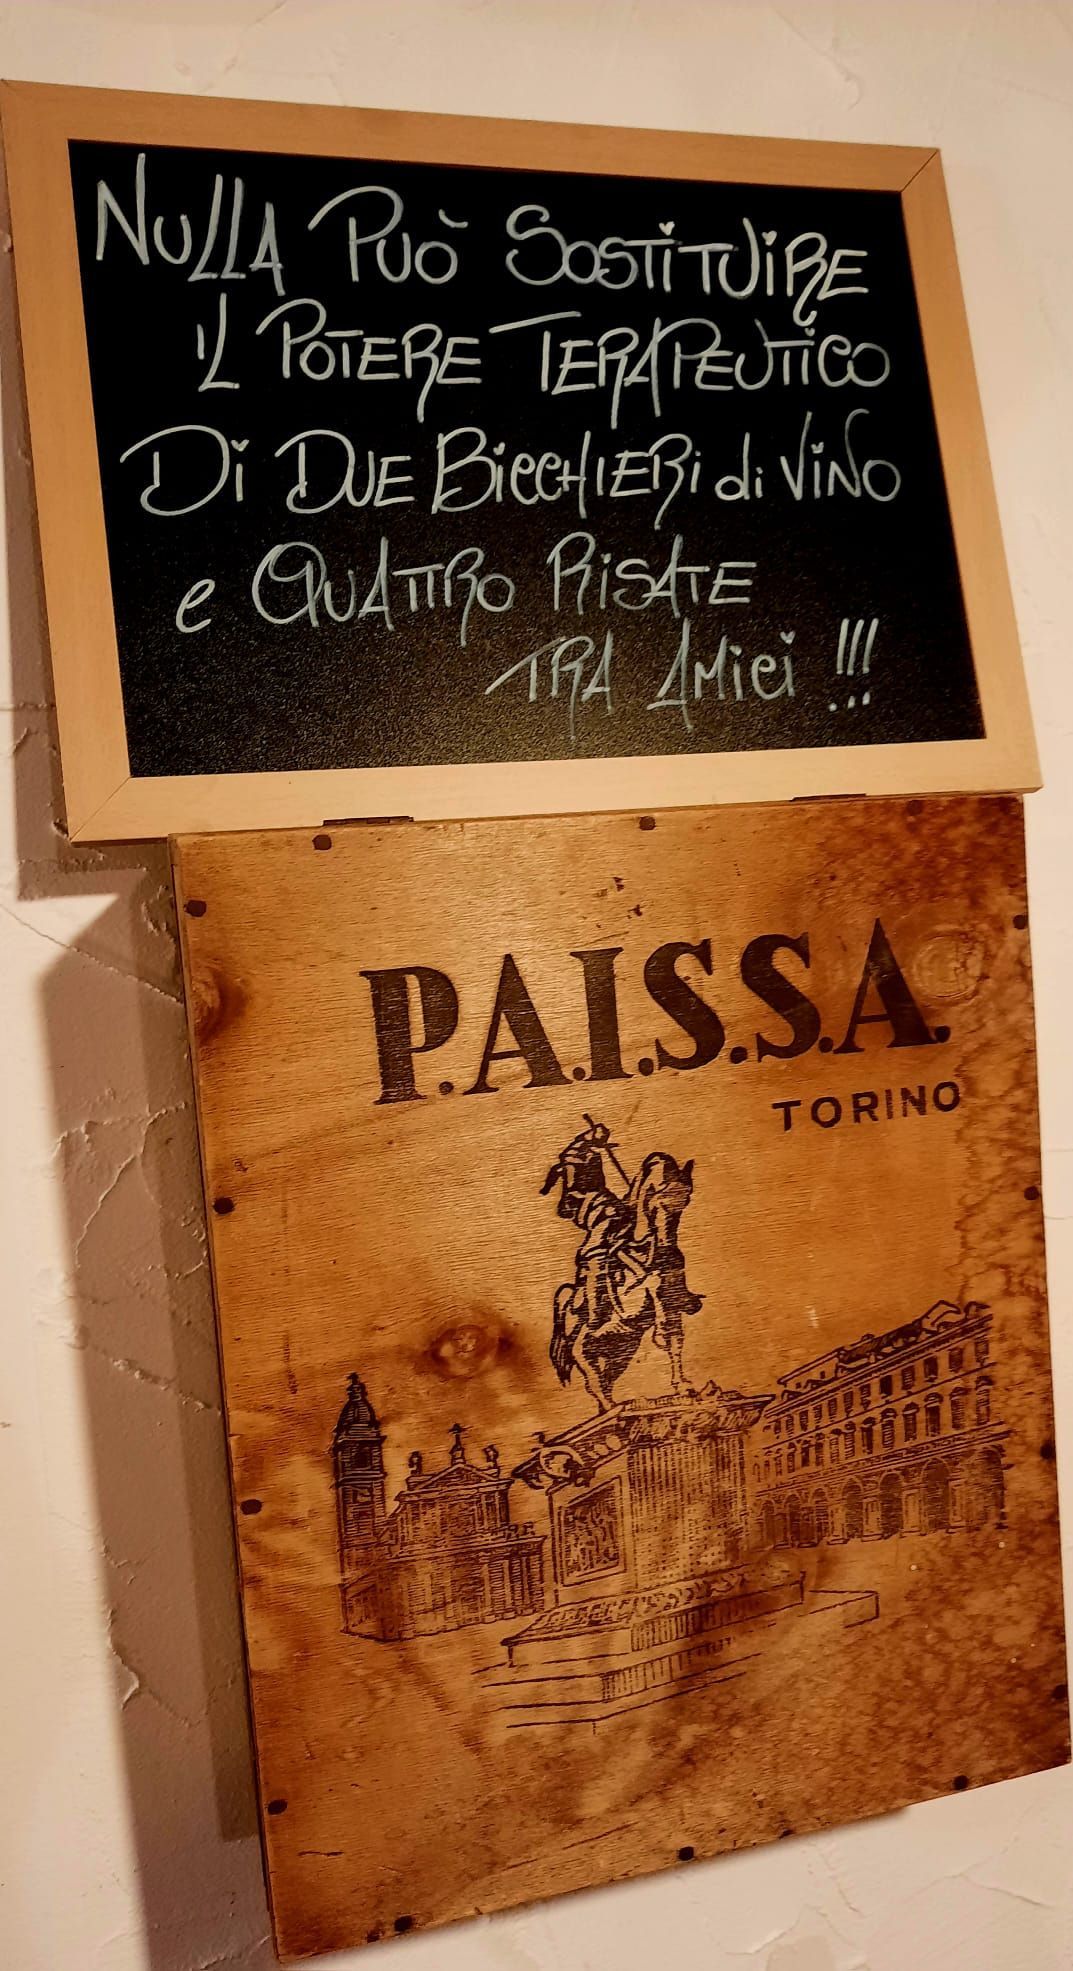 NULLA PUÒ SOSTITUIRE
IL POTERE TERAPEUTICO
Di DUE BiccHIERi di ViNO
e QUATTRO RiSATE
TRA AMici !!!
P.A.I.S.S.A.
TORINO